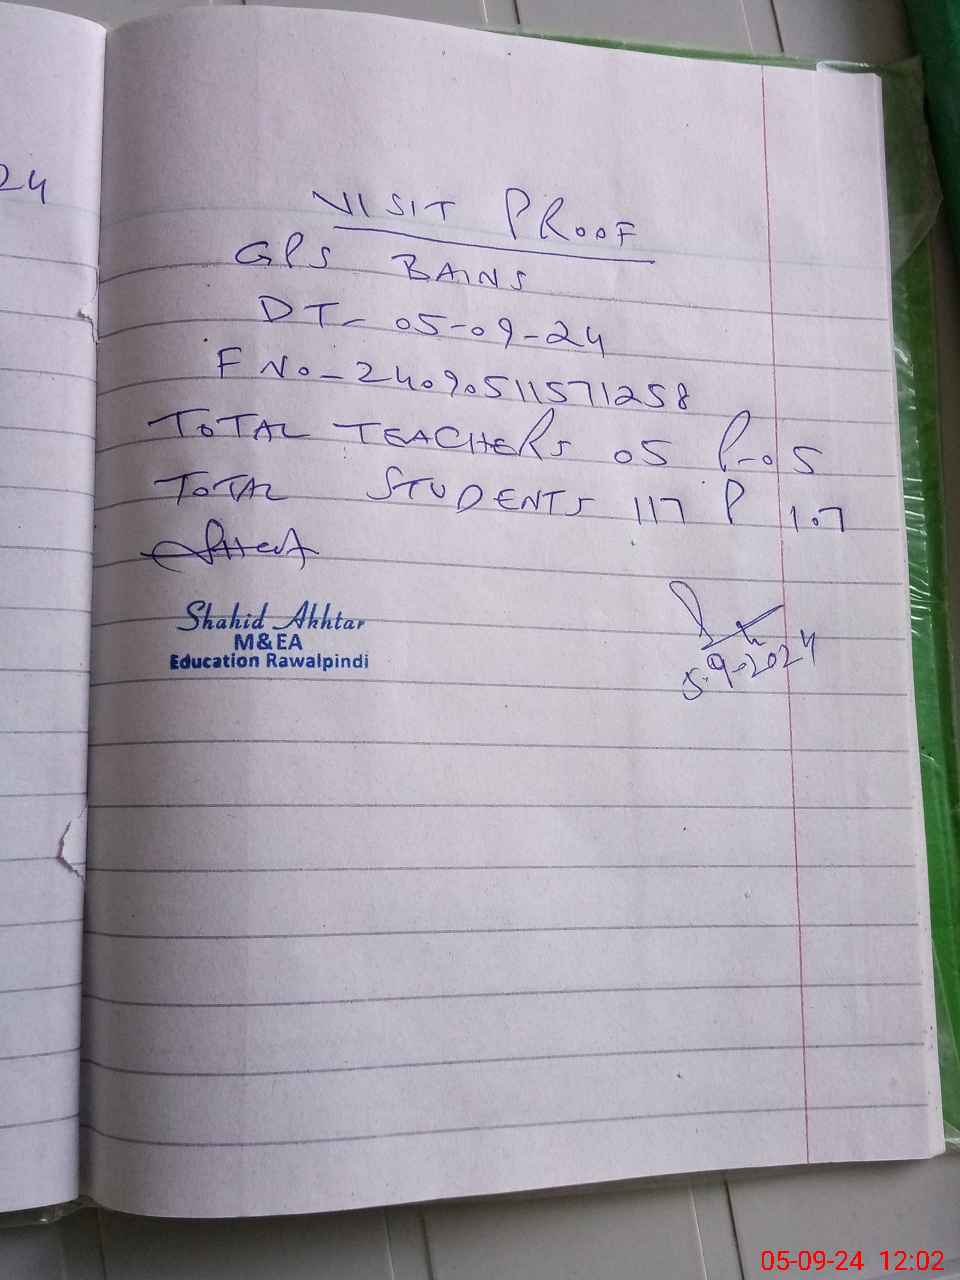 24
VISIT PROOF
GPS BAINS
DT- 05-09-24
F No- 24090511571258
TOTAL TEACHERS 05 P-05
TOTAL STUDENTS 117 P 107
Shahid Akhtar
M&EA
Education Rawalpindi
5-9-2024
05-09-24 12:02